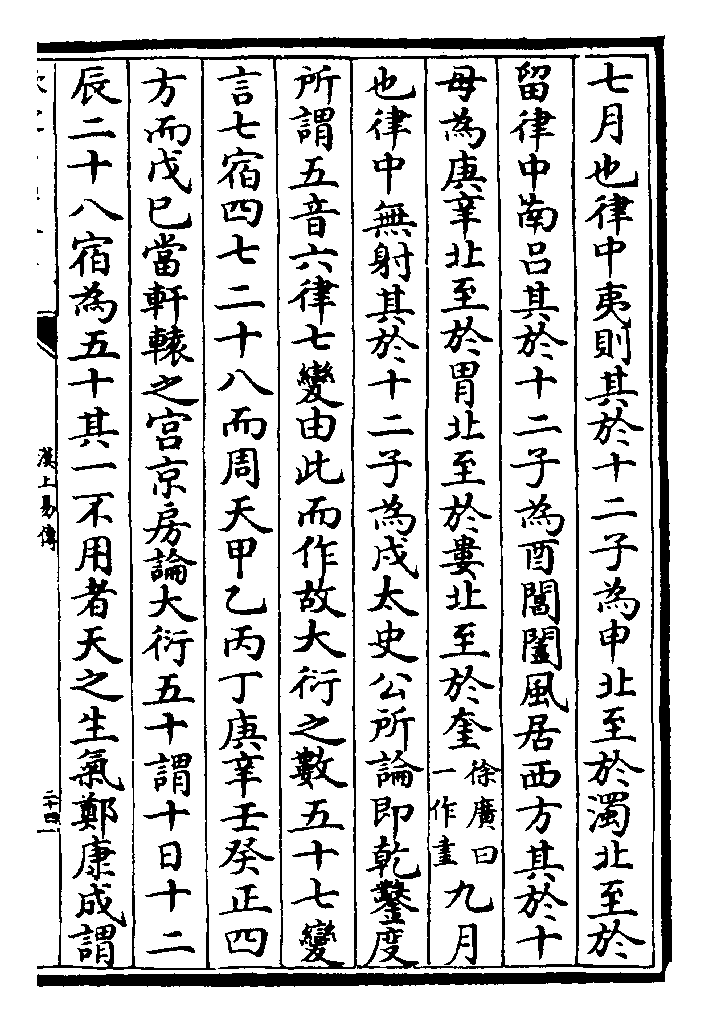 七月也律中夷則其於十二子為申北至於濁北至於
留律中南呂其於十二子為酉閶闔風居西方其於十
母為庚辛北至於胃北至於婁北至於奎徐廣曰一作畫九月
也律中無射其於十二子為戌太史公所論即乾鑿度
所謂五音六律七變由此而作故大衍之數五十七變
言七宿四七二十八而周天甲乙丙丁庚辛壬癸正四
方而戊巳當軒轅之宮京房論大衍五十謂十日十二
辰二十八宿為五十其一不用者天之生氣鄭康成謂
漢上易傳
二十四